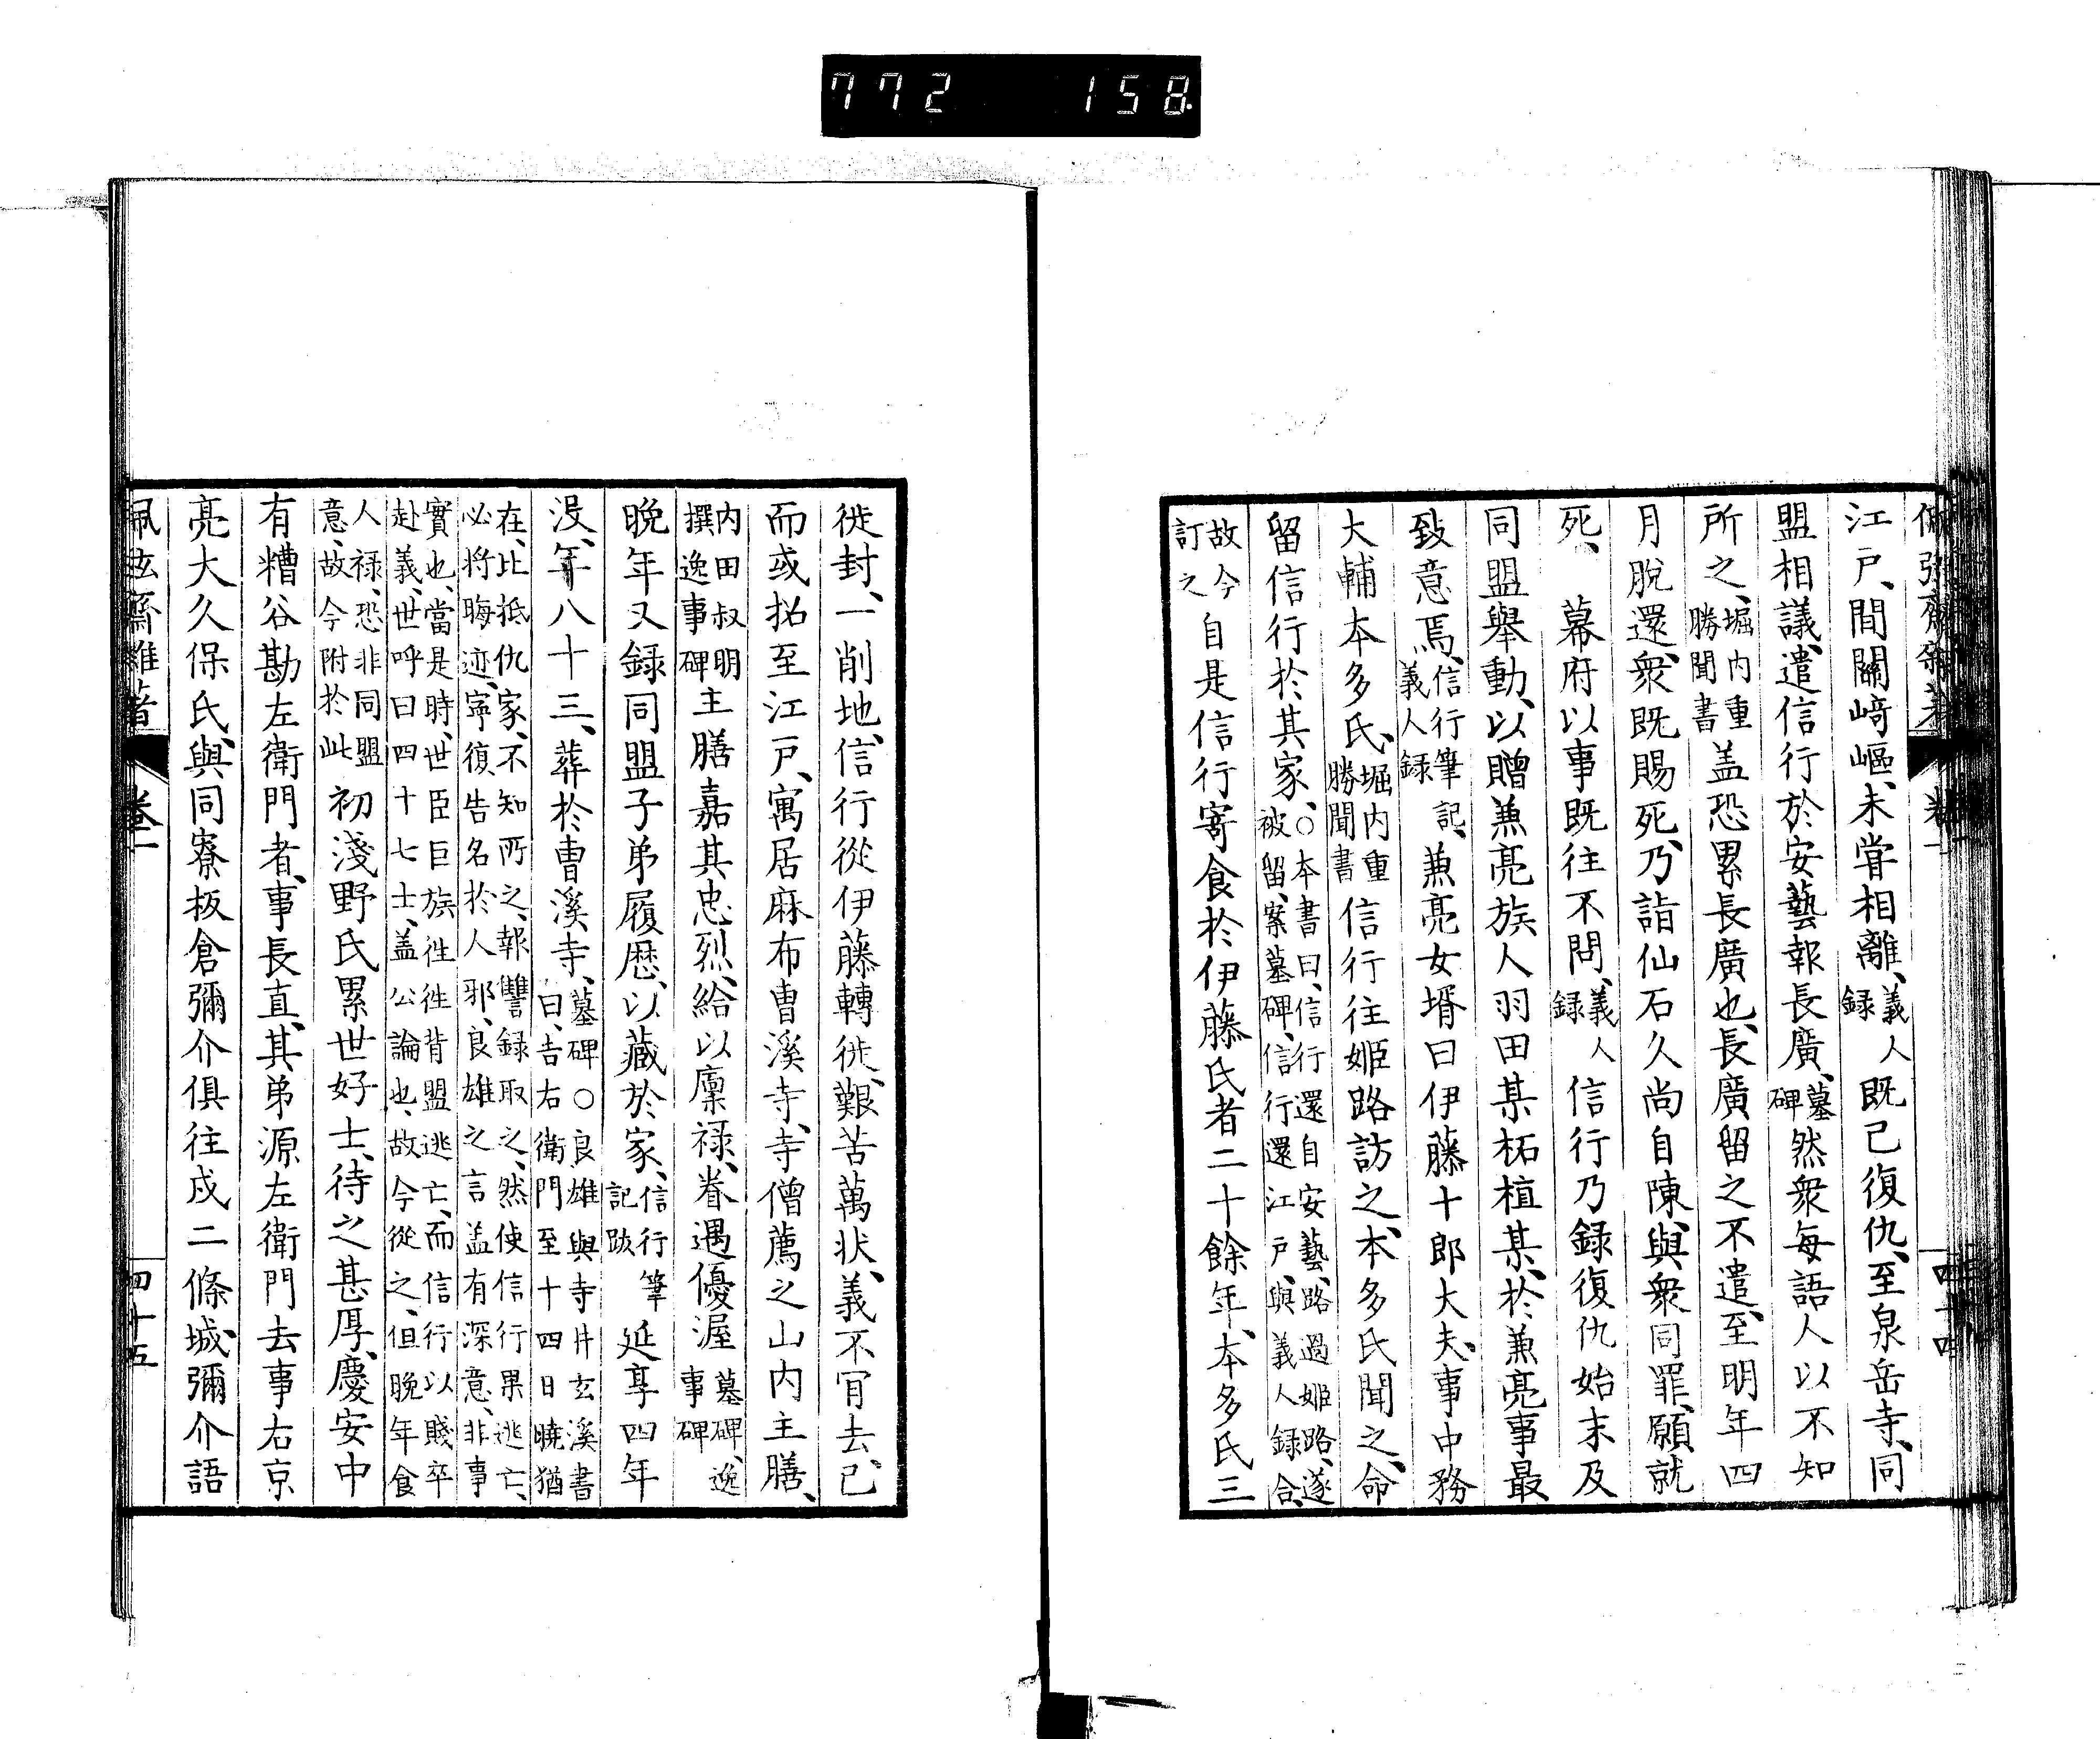 772 158
佩弦齋雜著 卷一 四十四
江戸、間關﨑嶇、未甞相離、義人録既已復仇、至泉岳寺、同
盟相議、遣信行於安藝報長廣、墓碑然衆毎語人以不知
所之、堀内重勝聞書盖恐累長廣也、長廣留之不遣、至明年四
月脱還、衆既賜死、乃詣仙石久尚自陳、與衆同罪、願就
死、幕府以事既往不問、義人録信行乃録復仇始末及
同盟舉動、以贈兼亮族人羽田某柘植某、於兼亮事最
致意焉、信行筆記、義人録兼亮女壻曰伊藤十郎大夫、事中務
大輔本多氏、堀内重勝聞書信行往姫路訪之、本多氏聞之、命
留信行於其家、○本書曰、信行還自安藝、路過姫路、遂被留、案墓碑、信行還江戸、與義人録合、
故今訂之自是信行寄食於伊藤氏者二十餘年、本多氏三
徙封、一削地、信行從伊藤轉徙、艱苦萬状、義不肎去、已
而或招至江戸、寓居麻布曹溪寺、寺僧薦之山内主膳、
内田叔明撰逸事碑主膳嘉其忠烈、給以廩禄、眷遇優渥墓碑、逸事碑
晩年又録同盟子弟履歴、以藏於家、信行筆記跋延享四年
没、年八十三、葬於曹溪寺、墓碑○良雄與寺井玄溪書曰、吉右衛門至十四日曉猶
在、比抵仇家、不知所之、報讐録取之、然使信行果逃亡、必將晦迹、寧復告名於人邪、良雄之言盖有深意、非事
實也、當是時、世臣巨族往往背盟逃亡、而信行以賤卒赴義、世呼曰四十七士、盖公論也、故今從之、但晩年食
人禄、恐非同盟意、故今附於此初淺野氏累世好士、待之甚厚、慶安中
有糟谷勘左衛門者、事長直、其弟源左衛門去事右京
亮大久保氏、與同寮板倉彌介倶往戍二條城、彌介語
佩弦齋雜著 卷一 四十五